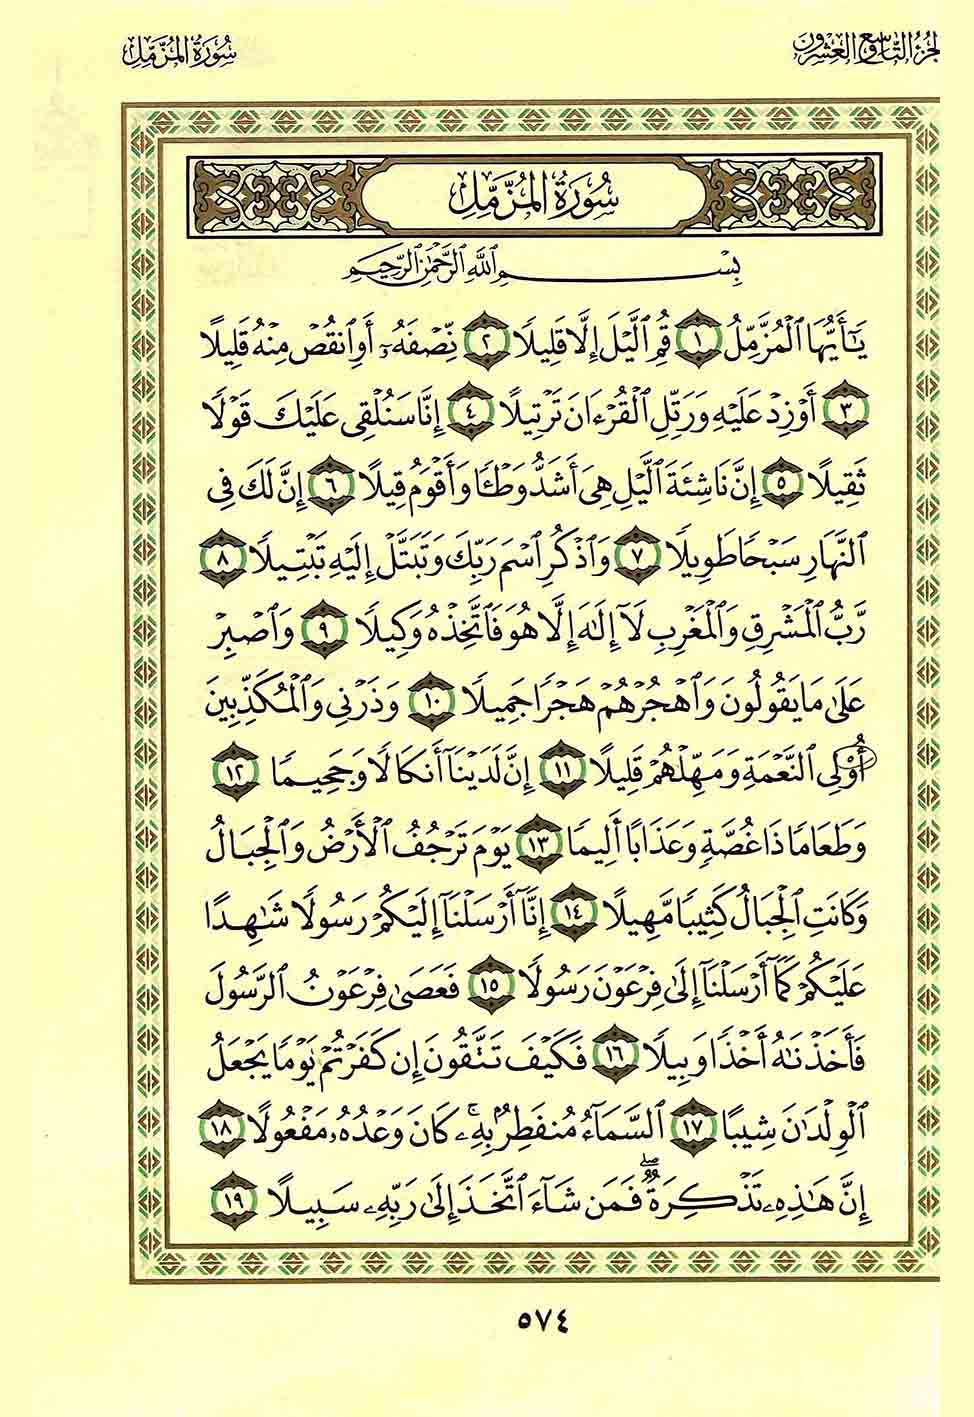 الجزء التاسع والعشرون
سُورَةُ المُزَّمِّلِ
سُورَةُ المُزَّمِّلِ
بِسْمِ ٱللَّهِ ٱلرَّحْمَٰنِ ٱلرَّحِيمِ
يَٰٓأَيُّهَا ٱلْمُزَّمِّلُ ١ قُمِ ٱلَّيْلَ إِلَّا قَلِيلًا ٢ نِّصْفَهُۥٓ أَوِ ٱنقُصْ مِنْهُ قَلِيلًا
٣ أَوْ زِدْ عَلَيْهِ وَرَتِّلِ ٱلْقُرْءَانَ تَرْتِيلًا ٤ إِنَّا سَنُلْقِى عَلَيْكَ قَوْلًا
ثَقِيلًا ٥ إِنَّ نَاشِئَةَ ٱلَّيْلِ هِىَ أَشَدُّ وَطْـًٔا وَأَقْوَمُ قِيلًا ٦ إِنَّ لَكَ فِى
ٱلنَّهَارِ سَبْحًا طَوِيلًا ٧ وَٱذْكُرِ ٱسْمَ رَبِّكَ وَتَبَتَّلْ إِلَيْهِ تَبْتِيلًا ٨
رَّبُّ ٱلْمَشْرِقِ وَٱلْمَغْرِبِ لَآ إِلَٰهَ إِلَّا هُوَ فَٱتَّخِذْهُ وَكِيلًا ٩ وَٱصْبِرْ
عَلَىٰ مَا يَقُولُونَ وَٱهْجُرْهُمْ هَجْرًا جَمِيلًا ١٠ وَذَرْنِى وَٱلْمُكَذِّبِينَ
أُو۟لِى ٱلنَّعْمَةِ وَمَهِّلْهُمْ قَلِيلًا ١١ إِنَّ لَدَيْنَآ أَنكَالًا وَجَحِيمًا ١٢
وَطَعَامًا ذَا غُصَّةٍ وَعَذَابًا أَلِيمًا ١٣ يَوْمَ تَرْجُفُ ٱلْأَرْضُ وَٱلْجِبَالُ
وَكَانَتِ ٱلْجِبَالُ كَثِيبًا مَّهِيلًا ١٤ إِنَّآ أَرْسَلْنَآ إِلَيْكُمْ رَسُولًا شَٰهِدًا
عَلَيْكُمْ كَمَآ أَرْسَلْنَآ إِلَىٰ فِرْعَوْنَ رَسُولًا ١٥ فَعَصَىٰ فِرْعَوْنُ ٱلرَّسُولَ
فَأَخَذْنَٰهُ أَخْذًا وَبِيلًا ١٦ فَكَيْفَ تَتَّقُونَ إِن كَفَرْتُمْ يَوْمًا يَجْعَلُ
ٱلْوِلْدَٰنَ شِيبًا ١٧ ٱلسَّمَآءُ مُنفَطِرٌۢ بِهِۦ ۚ كَانَ وَعْدُهُۥ مَفْعُولًا ١٨
إِنَّ هَٰذِهِۦ تَذْكِرَةٌ ۖ فَمَن شَآءَ ٱتَّخَذَ إِلَىٰ رَبِّهِۦ سَبِيلًا ١٩
٥٧٤